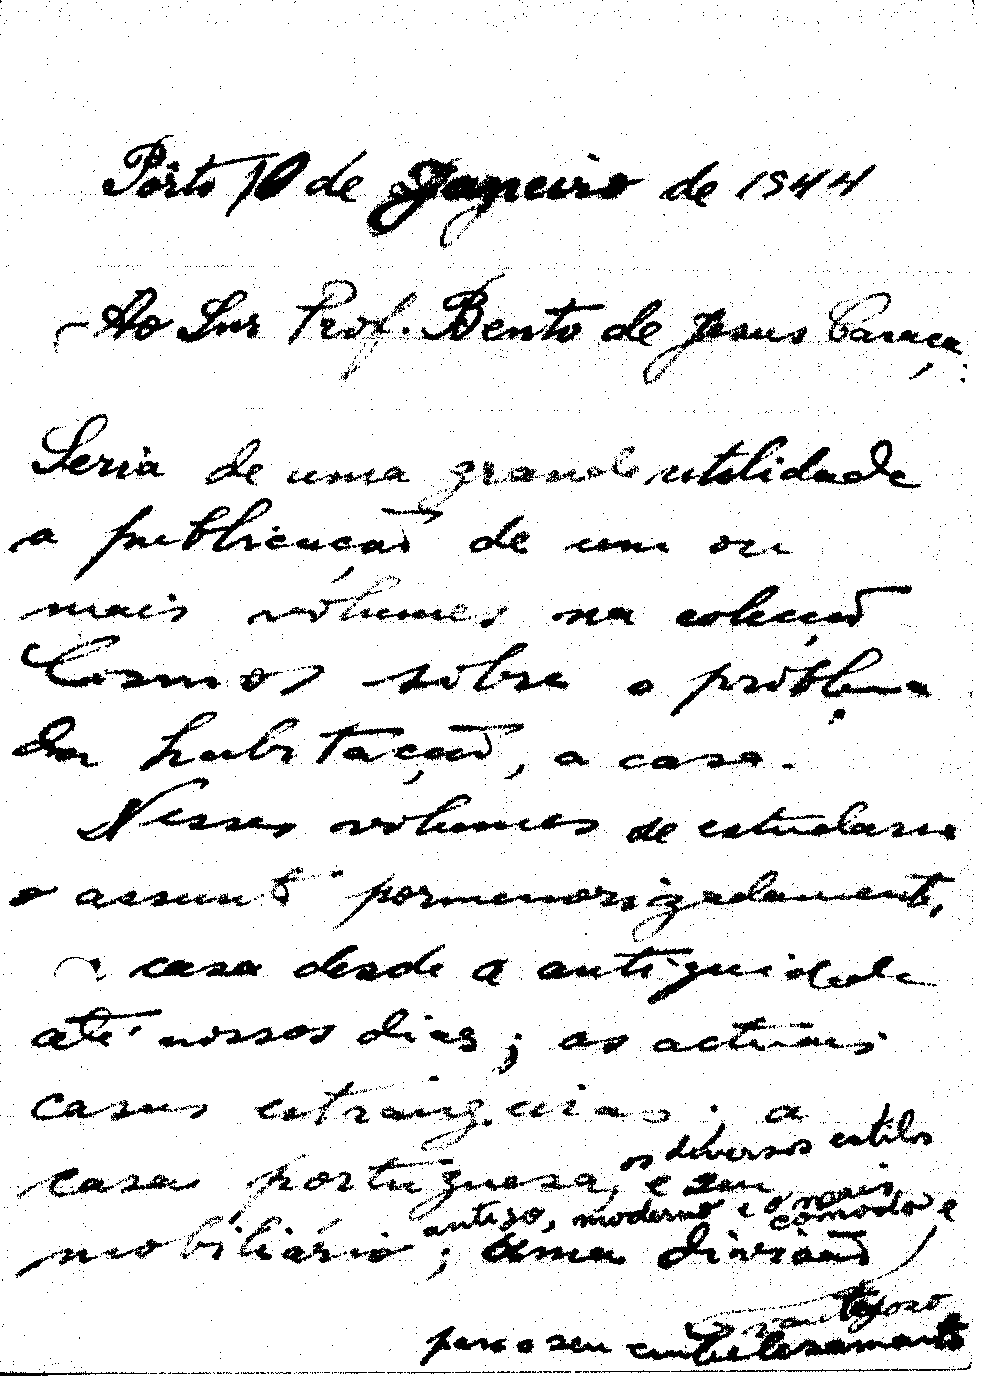 Pôrto 10 de Janeiro de 1944
Ao Snr Prof. Bento de Jesus Caraça:
Seria de uma grande utilidade
a publicação de um ou
mais volumes na colecção
Cosmos sôbre o problema
da habitação, a casa.
Nesses volumes se estudaria
o assunto pormenorizadamente,
a casa desde a antiguidade
até nossos dias; as actuais
casas estrangeiras; a
os diversos estilos
casa portuguesa, e seu
antigo, moderno e o mais
cómodo e
mobiliário; uma divisão
vantajoso
para o seu embelezamento